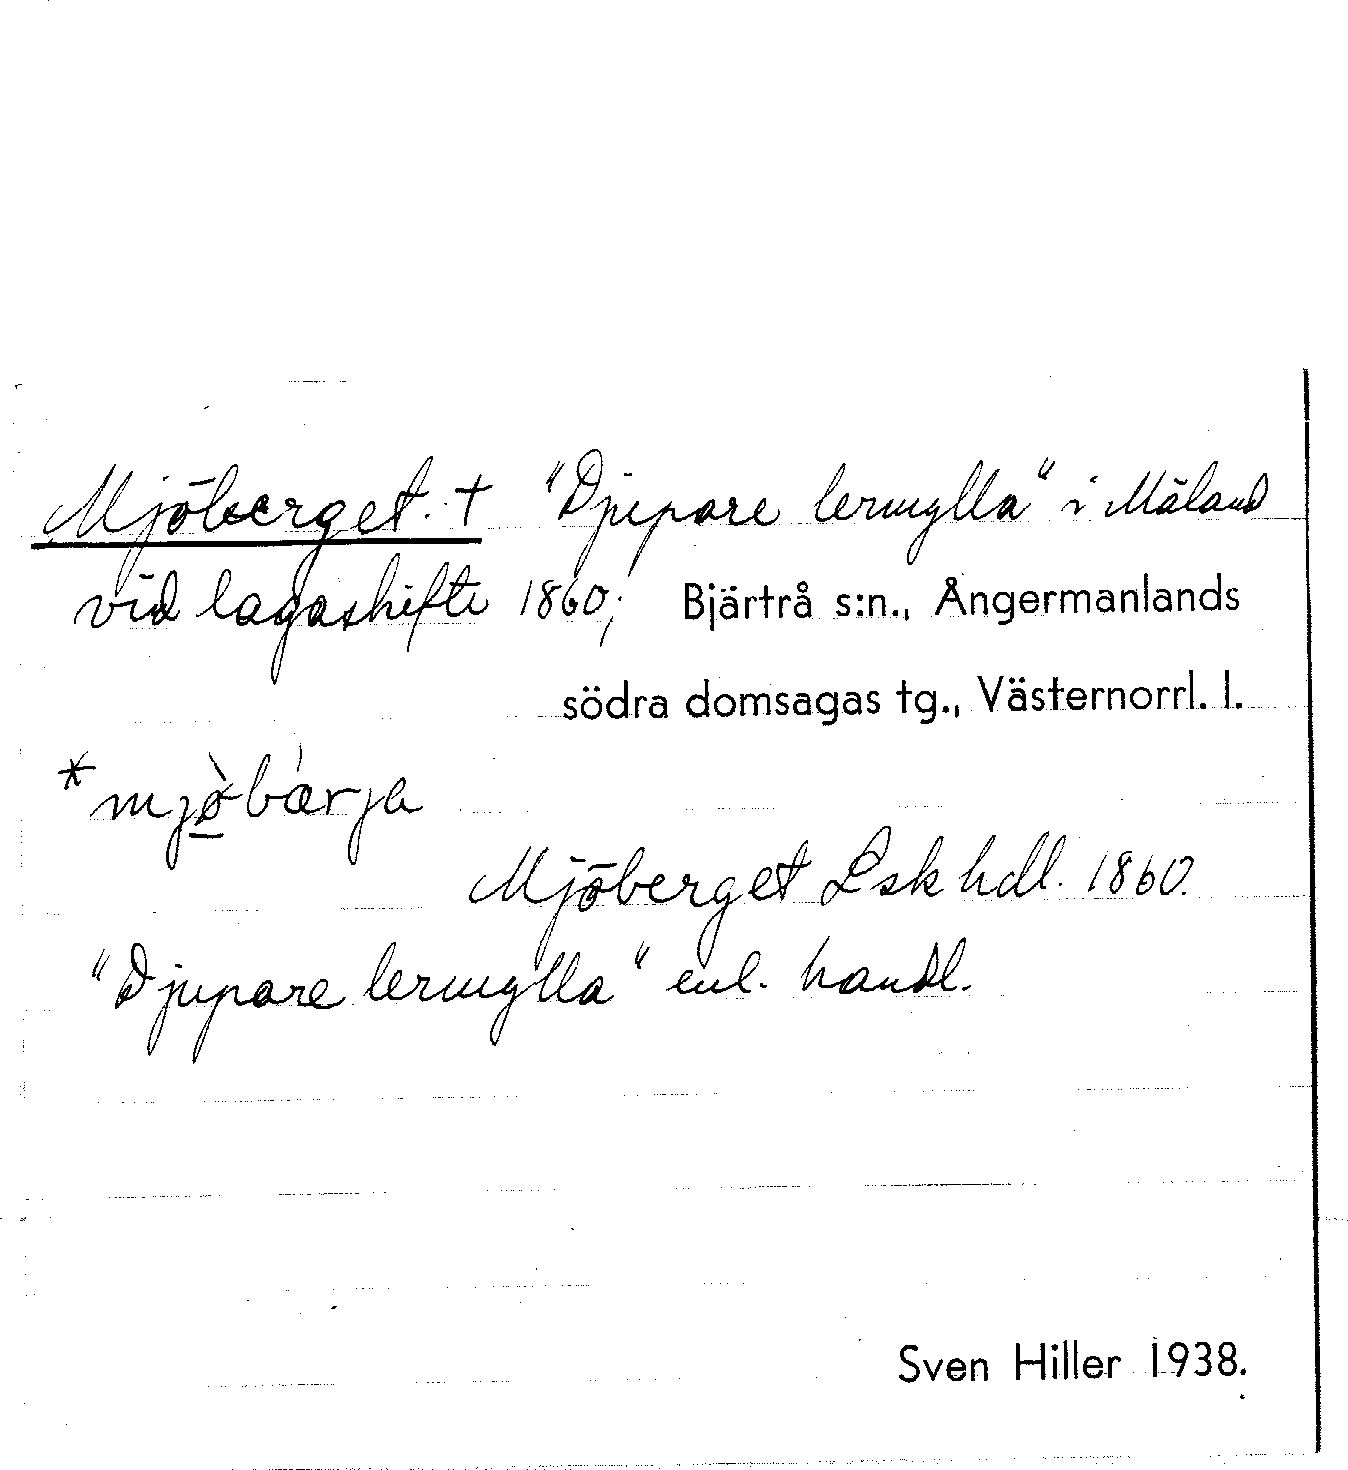 Mjöberget. † "Djupare lermylla" i Mäland
vid lagaskifte 1860; Bjärtrå s:n., Ångermanlands
södra domsagas tg., Västernorrl. l.
*mjø̀bǽrja
Mjöberget Lsk hdl. 1860.
"Djupare lermylla" enl. handl.
Sven Hiller 1938.